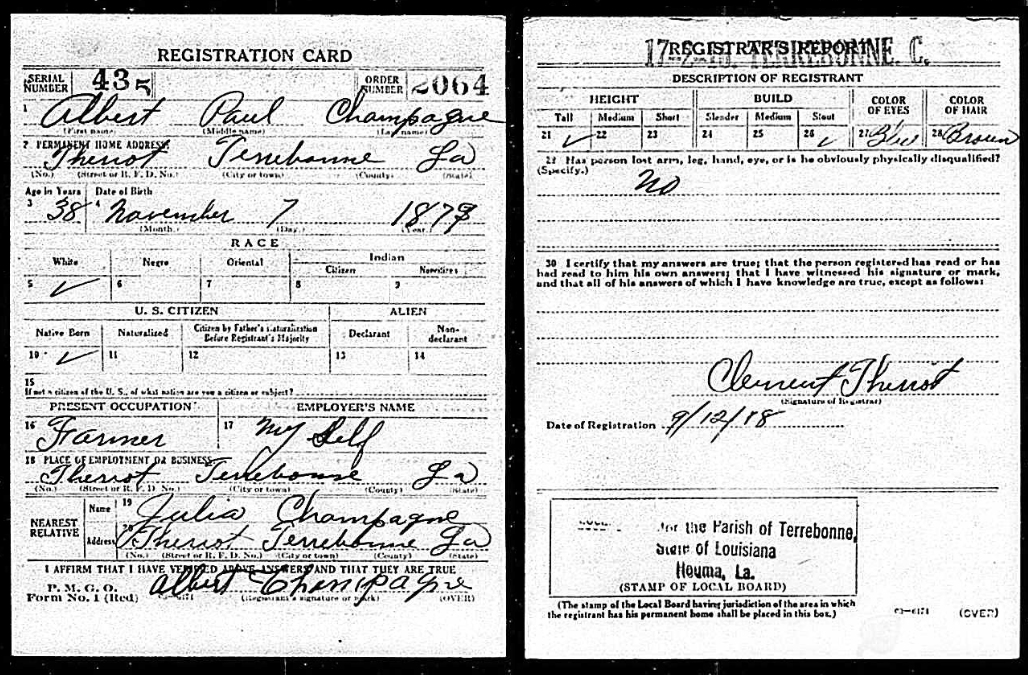 REGISTRATION CARD
SERIAL NUMBER 435 ORDER NUMBER 2064
1 Albert Paul Champagne
(First name) (Middle name) (Last name)
2 PERMANENT HOME ADDRESS:
Theriot Terrebonne La
(No.) (Street or R. F. D. No.) (City or town) (County) (State)
Age in Years Date of Birth
3 38 4 November 7 1879
(Month.) (Day.) (Year.)
RACE
White Negro Oriental Indian
Citizen Noncitizen
5 ✓ 6 7 8 9
U. S. CITIZEN ALIEN
Native Born Naturalized Citizen by Father's Naturalization Before Registrant's Majority Declarant Non-declarant
10 ✓ 11 12 13 14
15
If not a citizen of the U. S., of what nation are you a citizen or subject?
PRESENT OCCUPATION EMPLOYER'S NAME
16 Farmer 17 My Self
18 PLACE OF EMPLOYMENT OR BUSINESS:
Theriot Terrebonne La
(No.) (Street or R. F. D. No.) (City or town) (County) (State)
NEAREST RELATIVE Name 19 Julia Champagne
Address 20 Theriot Terrebonne La
(No.) (Street or R. F. D. No.) (City or town) (County) (State)
I AFFIRM THAT I HAVE VERIFIED ABOVE ANSWERS AND THAT THEY ARE TRUE
P. M. G. O.
Form No. 1 (Red) Albert Champagne
(Registrant's signature or mark) (OVER)
REGISTRAR'S REPORT
TERREBONNE, C.
DESCRIPTION OF REGISTRANT
HEIGHT BUILD COLOR OF EYES COLOR OF HAIR
Tall Medium Short Slender Medium Stout
21 ✓ 22 23 24 25 26 ✓ 27 Blue 28 Brown
29 Has person lost arm, leg, hand, eye, or is he obviously physically disqualified?
(Specify.) No
30 I certify that my answers are true; that the person registered has read or has
had read to him his own answers; that I have witnessed his signature or mark,
and that all of his answers of which I have knowledge are true, except as follows:
Clement Theriot
(Signature of Registrar)
Date of Registration 9/12/18
for the Parish of Terrebonne,
State of Louisiana
Houma, La.
(STAMP OF LOCAL BOARD)
(The stamp of the Local Board having jurisdiction of the area in which
the registrant has his permanent home shall be placed in this box.)
(OVER)